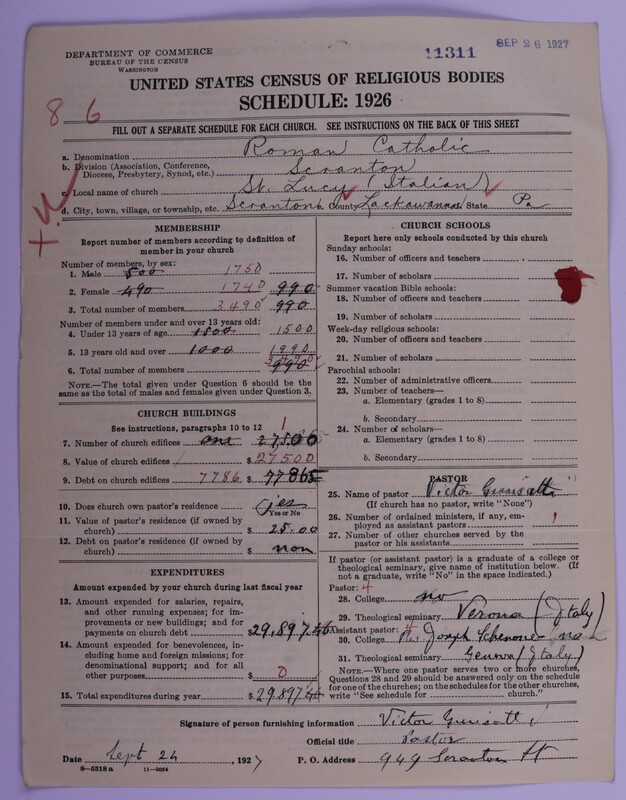 DEPARTMENT OF COMMERCE
BUREAU OF THE CENSUS
WASHINGTON
11311
SEP 26 1927
UNITED STATES CENSUS OF RELIGIOUS BODIES
SCHEDULE: 1926
8 6
FILL OUT A SEPARATE SCHEDULE FOR EACH CHURCH. SEE INSTRUCTIONS ON THE BACK OF THIS SHEET
a. Denomination Roman Catholic
b. Division (Association, Conference, Diocese, Presbytery, Synod, etc.) Scranton
c. Local name of church St. Lucy (Italian)
d. City, town, village, or township, etc. Scranton County Lackawanna State Pa
MEMBERSHIP
Report number of members according to definition of member in your church
Number of members, by sex:
1. Male 500 1750
2. Female 490 1740 990
3. Total number of members 3490 990
Number of members under and over 13 years old:
4. Under 13 years of age 1500 1500
5. 13 years old and over 1000 1990
6. Total number of members 3490 990
NOTE.—The total given under Question 6 should be the same as the total of males and females given under Question 3.
CHURCH BUILDINGS
See instructions, paragraphs 10 to 12
7. Number of church edifices one 1 27500
8. Value of church edifices $ 27500
9. Debt on church edifices 7786 $ 77865
10. Does church own pastor's residence yes
Yes or No
11. Value of pastor's residence (if owned by church) $ 25.00
12. Debt on pastor's residence (if owned by church) $ non
EXPENDITURES
Amount expended by your church during last fiscal year
13. Amount expended for salaries, repairs, and other running expenses; for improvements or new buildings; and for payments on church debt $29,897.46
14. Amount expended for benevolences, including home and foreign missions; for denominational support; and for all other purposes $ 0
15. Total expenditures during year $29897.46
CHURCH SCHOOLS
Report here only schools conducted by this church
Sunday schools:
16. Number of officers and teachers
17. Number of scholars
Summer vacation Bible schools:
18. Number of officers and teachers
19. Number of scholars
Week-day religious schools:
20. Number of officers and teachers
21. Number of scholars
Parochial schools:
22. Number of administrative officers
23. Number of teachers—
a. Elementary (grades 1 to 8)
b. Secondary
24. Number of scholars—
a. Elementary (grades 1 to 8)
b. Secondary
PASTOR
25. Name of pastor Victor
(If church has no pastor, write "None")
26. Number of ordained ministers, if any, employed as assistant pastors 1
27. Number of other churches served by the pastor or his assistants
If pastor (or assistant pastor) is a graduate of a college or theological seminary, give name of institution below. (If not a graduate, write "No" in the space indicated.)
Pastor: 4
28. College no
29. Theological seminary Verona (Italy)
Assistant pastor: 4
30. College Joseph Schenone no
31. Theological seminary Genova (Italy)
NOTE.—Where one pastor serves two or more churches, Questions 28 and 29 should be answered only on the schedule for one of the churches; on the schedules for the other churches, write "See schedule for church."
Signature of person furnishing information Victor
Official title Pastor
Date Sept 24, 1927
P. O. Address 949 Scranton St
8—5518 a 11—9064